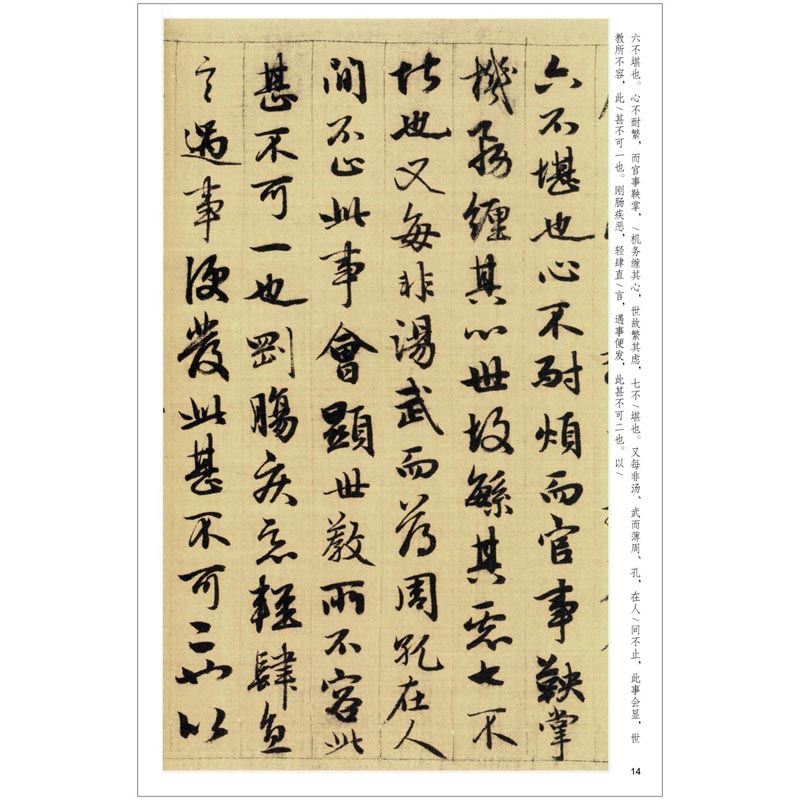 六不堪也。心不耐繁，而官事鞅掌，\机务缠其心，世故繁其虑，七不\堪也。又每非汤、武而薄周、孔，在人\间不止，此事会显，世
教所不容，此\甚不可一也。刚肠疾恶，轻肆直\言，遇事便发，此甚不可二也。以\
六不堪也心不耐煩而官事鞅掌
機務纏其心世故繁其慮七不
堪也又每非湯武而薄周孔在人
間不止此事會顯世教所不容此
甚不可一也剛腸疾惡輕肆直
言遇事便發此甚不可二也以
14